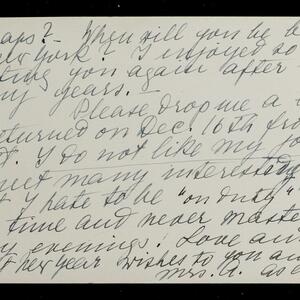 aps? - When will you be b
ew York? I enjoyed so
ing you again after
ny years.
Please drop me a
eturned on Dec. 16th fro
I do not like my jo
met many interesting
I hate to be "on duty"
time and never master
y evenings! Love and
New Year wishes to you an
Mrs. A.